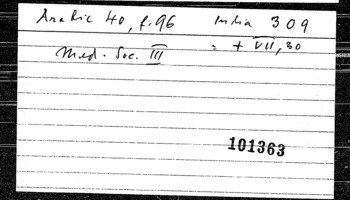 Arabic 40, f. 96 India 309
Med. Soc. III = + VII, 30
101363